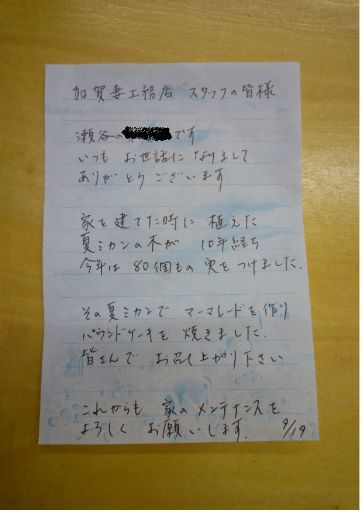 加賀妻工務店 スタッフの皆様
瀬谷の です
いつも お世話になりまして
ありがとうございます
家を建てた時に 植えた
夏ミカンの木が 10年経ち
今年は 80個もの 実をつけました.
その夏ミカンで マーマレードを作り
パウンドケーキを 焼きました.
皆さんで お召し上がり下さい
これからも 家のメンテナンスを
よろしく お願いします. 9/19